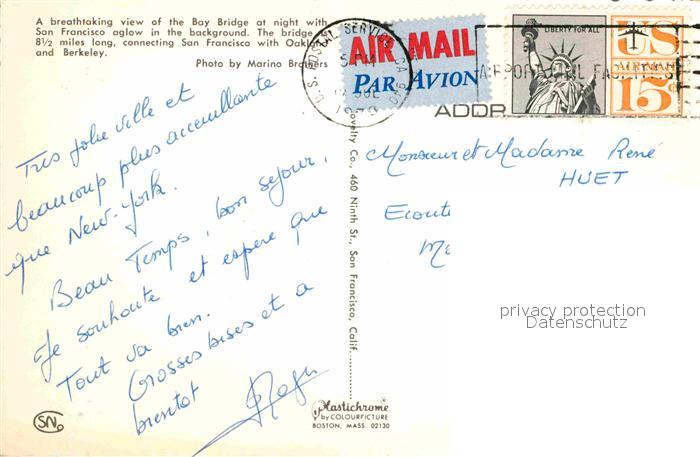 A breathtaking view of the Bay Bridge at night with
San Francisco aglow in the background. The bridge
8½ miles long, connecting San Francisco with Oakland
and Berkeley.
Photo by Marino Brothers
U.S. POSTAL SERVICE CA
1970
AIR MAIL
PAR AVION
LIBERTY FOR ALL
US
AIR MAIL
15¢
ADDR
Très jolie ville et
beaucoup plus accueillante
que New-York.
Beau Temps, bon séjour,
Je souhaite et espère que
Tout va bien.
Grosses bises et à
bientot
Novelty Co., 460 Ninth St., San Francisco, Calif.
Monsieur et Madame René
HUET
Ecoute
privacy protection
Datenschutz
SN
Plastichrome
by COLOURPICTURE
BOSTON, MASS. 02130